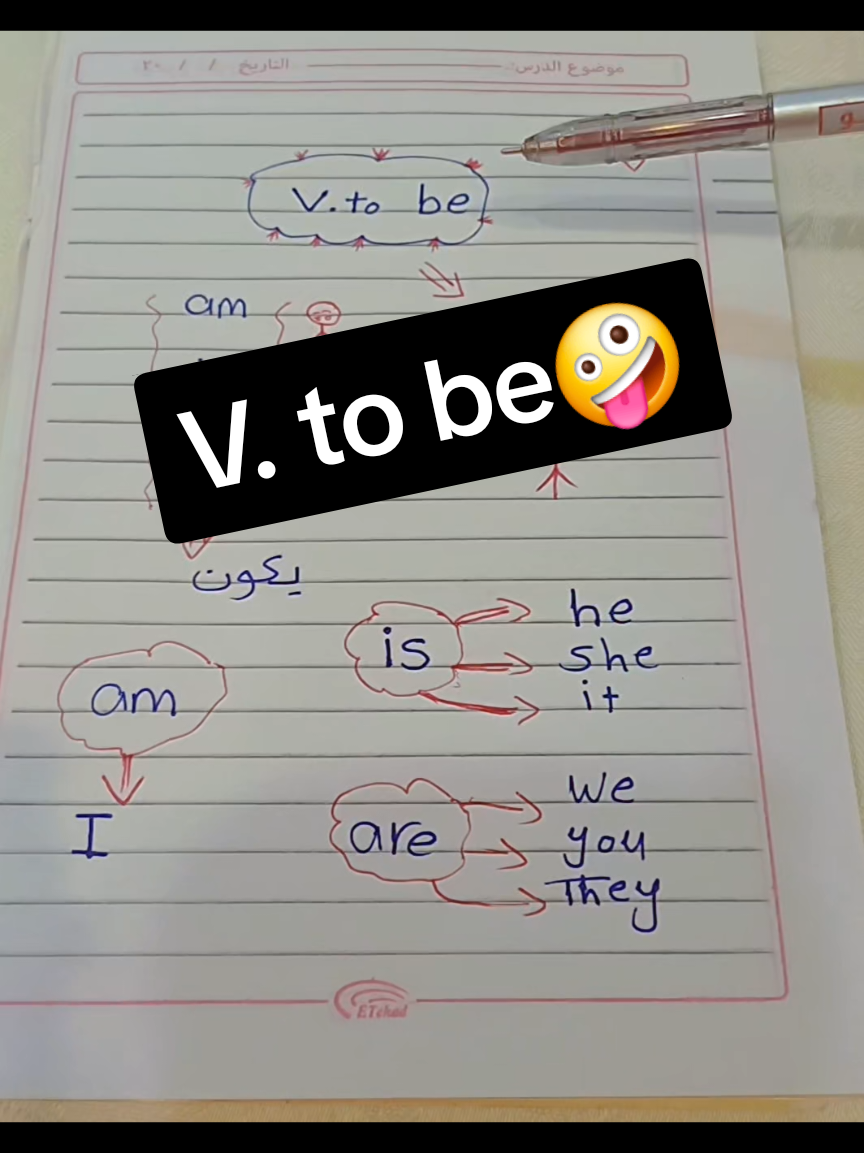 موضوع الدرس: التاريخ / / ٢٠
V. to be
am
V. to be🤪
يكون
is he
she
it
am
I
are We
you
They
ETehad